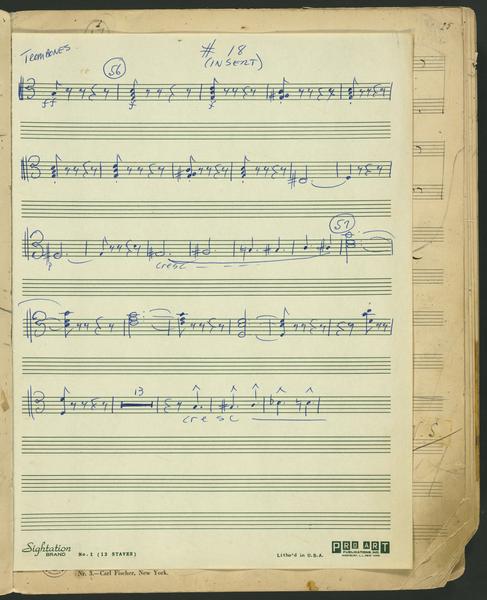 25
TROMBONES
# 18
(INSERT)
56
ff
f
f
57
p
cresc
13
cresc
Sightation
BRAND
No. 1 (12 STAVES)
Litho'd in U.S.A.
PRO ART
PUBLICATIONS, INC.
WESTBURY, L.I., NEW YORK
Nr. 3.—Carl Fischer, New York.